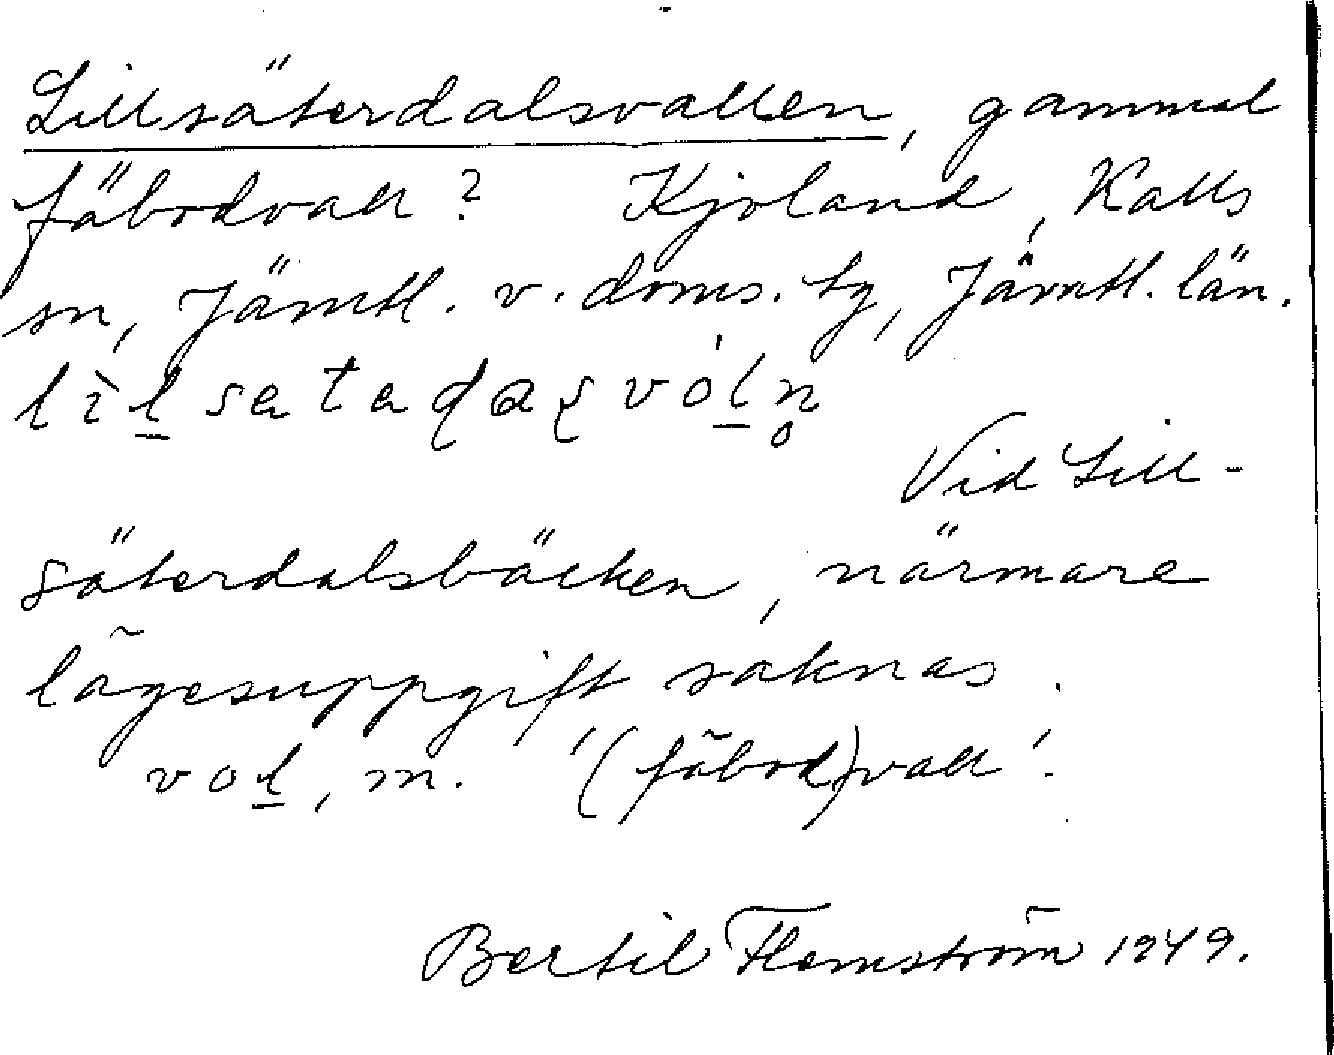 Lillsäterdalsvallen, gammal
fäbodvall? Kjoland, Kalls
sn, Jämtl. v. doms. tg, Jämtl. län.
Vid Lill-
säterdalsbäcken, närmare
lägesuppgift saknas.
vol, m. '(fäbod)vall'.
Bertil Flemström 1949.